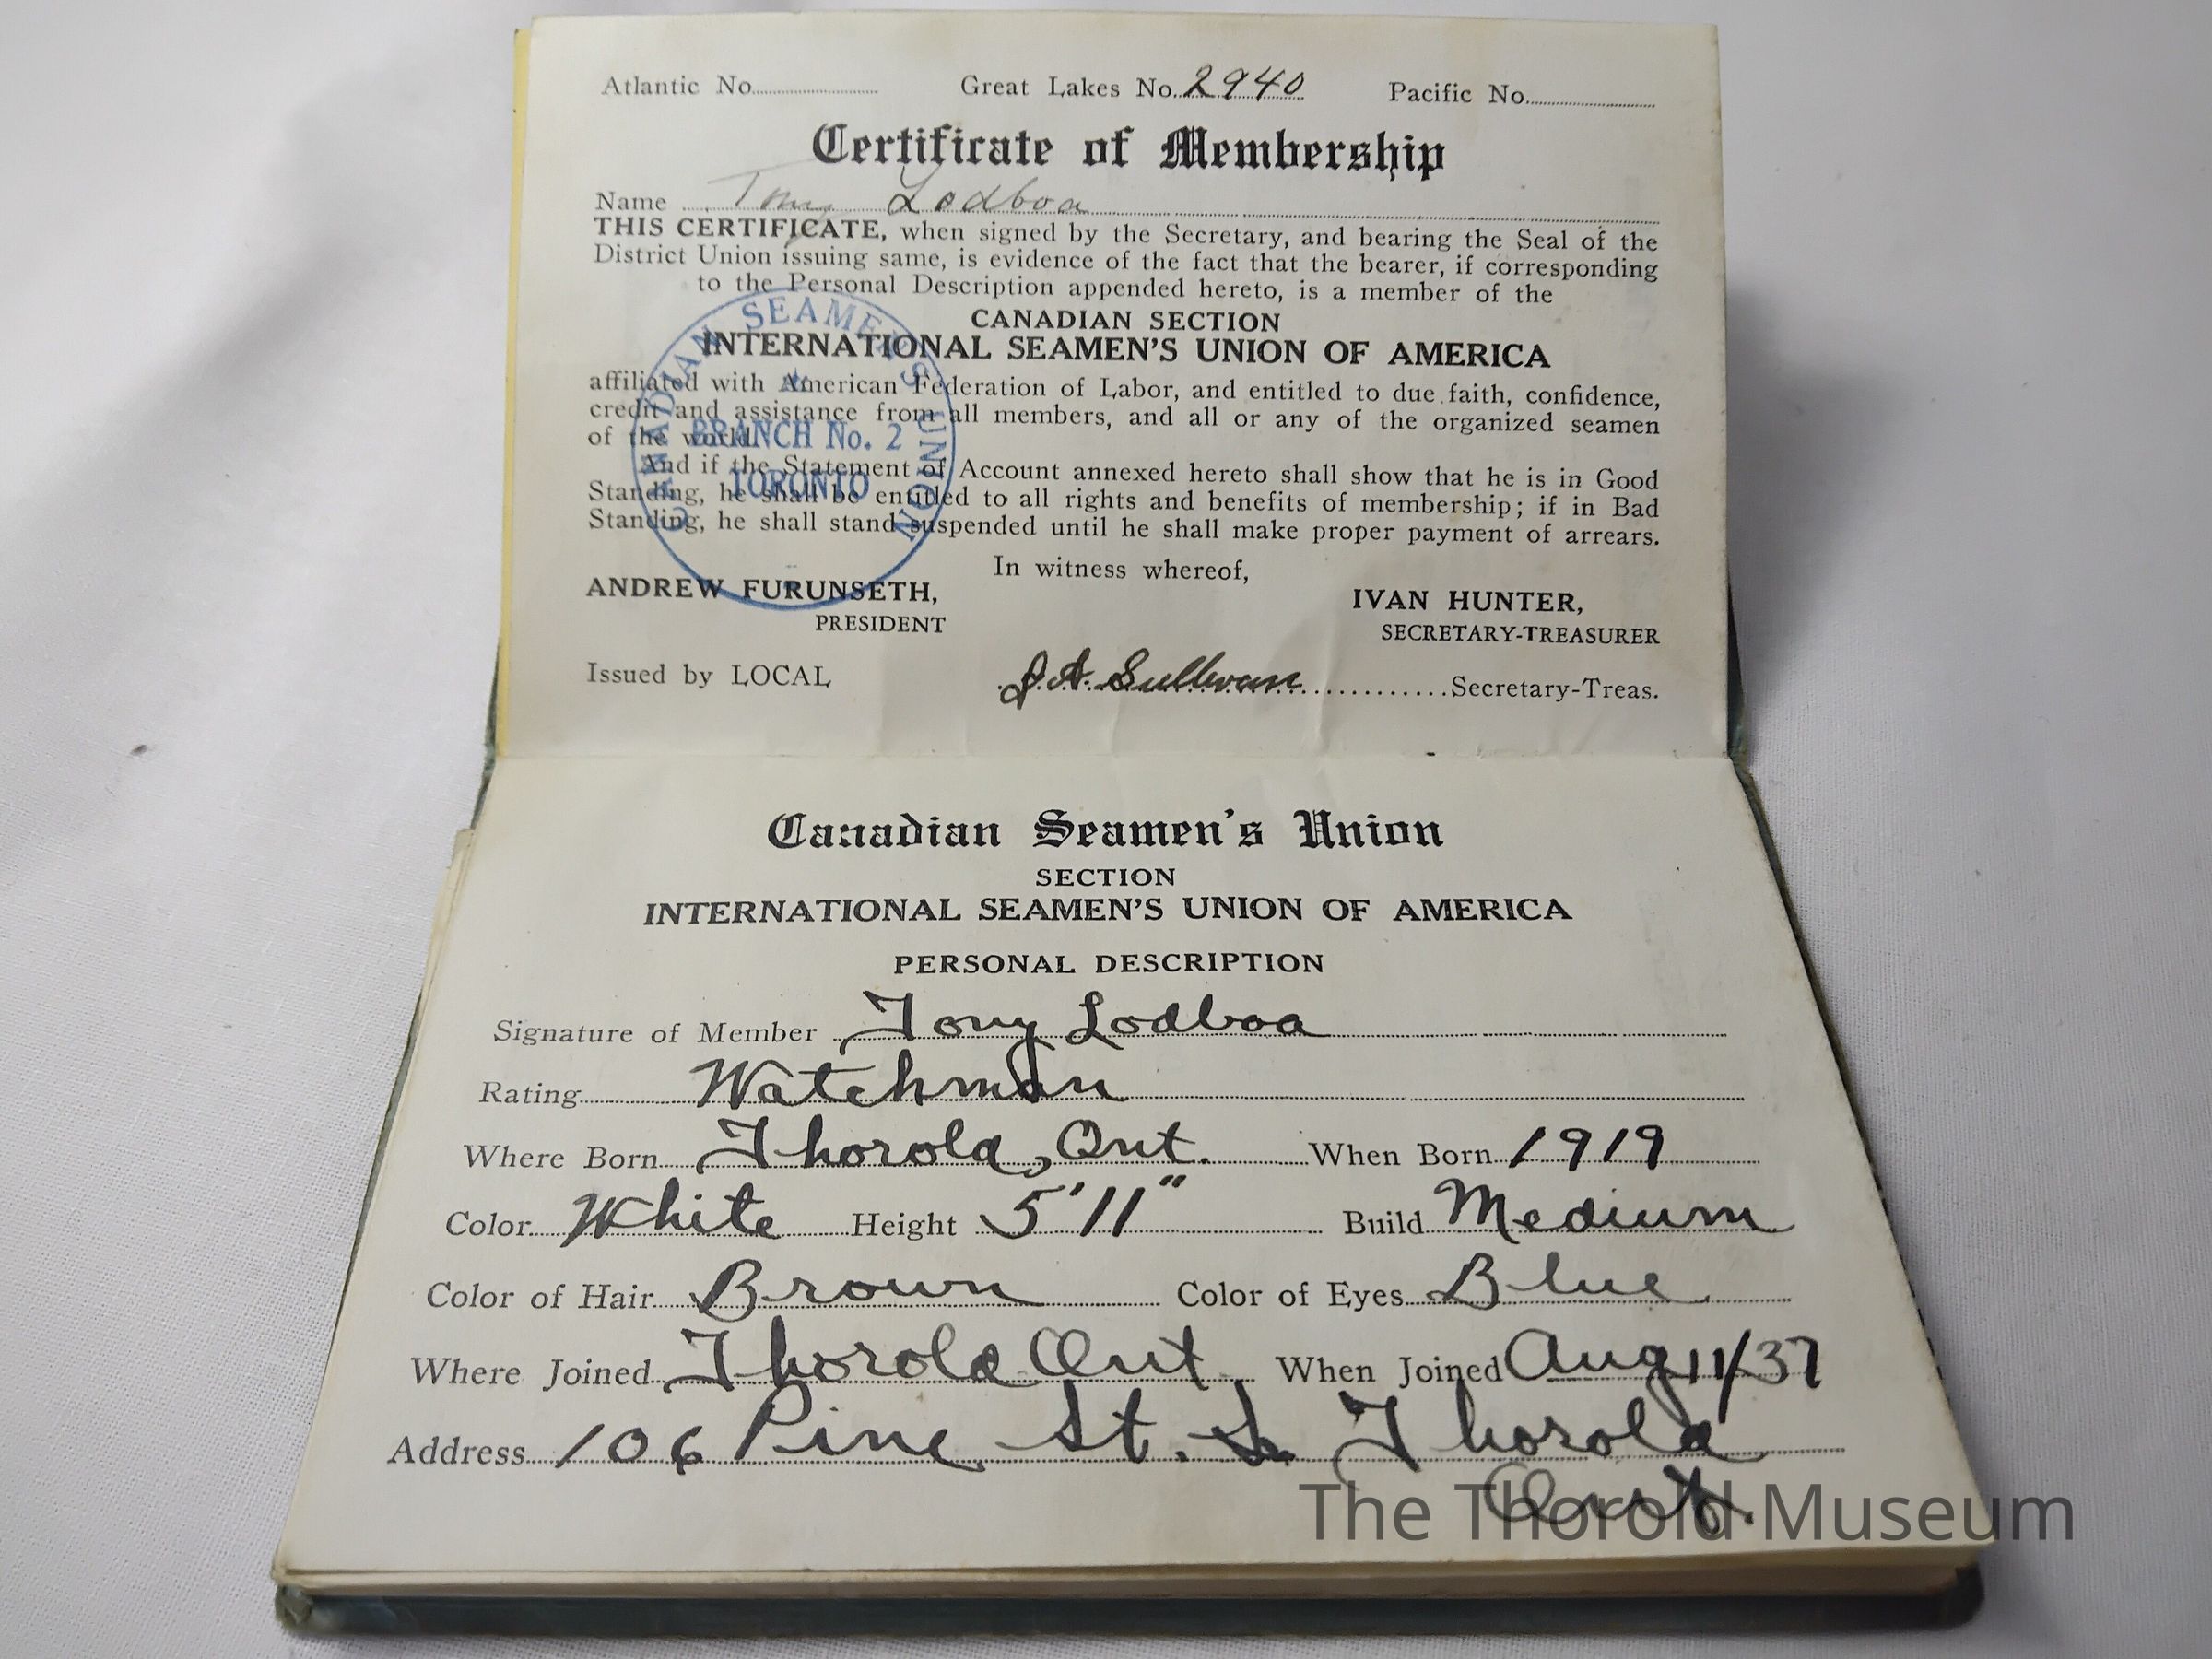 Atlantic No. Great Lakes No. 2940 Pacific No.
Certificate of Membership
Name Tony Lodboa
THIS CERTIFICATE, when signed by the Secretary, and bearing the Seal of the
District Union issuing same, is evidence of the fact that the bearer, if corresponding
to the Personal Description appended hereto, is a member of the
CANADIAN SECTION
INTERNATIONAL SEAMEN'S UNION OF AMERICA
affiliated with American Federation of Labor, and entitled to due faith, confidence,
credit and assistance from all members, and all or any of the organized seamen
of the world.
And if the Statement of Account annexed hereto shall show that he is in Good
Standing, he shall be entitled to all rights and benefits of membership; if in Bad
Standing, he shall stand suspended until he shall make proper payment of arrears.
CANADIAN SEAMEN'S UNION
BRANCH No. 2
TORONTO
In witness whereof,
ANDREW FURUNSETH, IVAN HUNTER,
PRESIDENT SECRETARY-TREASURER
Issued by LOCAL J.A. Sullivan Secretary-Treas.
Canadian Seamen's Union
SECTION
INTERNATIONAL SEAMEN'S UNION OF AMERICA
PERSONAL DESCRIPTION
Signature of Member Tony Lodboa
Rating Watchman
Where Born Thorold, Ont. When Born 1919
Color White Height 5'11" Build Medium
Color of Hair Brown Color of Eyes Blue
Where Joined Thorold Ont. When Joined Aug 11/37
Address 106 Pine St. S. Thorold
Ont.
The Thorold Museum